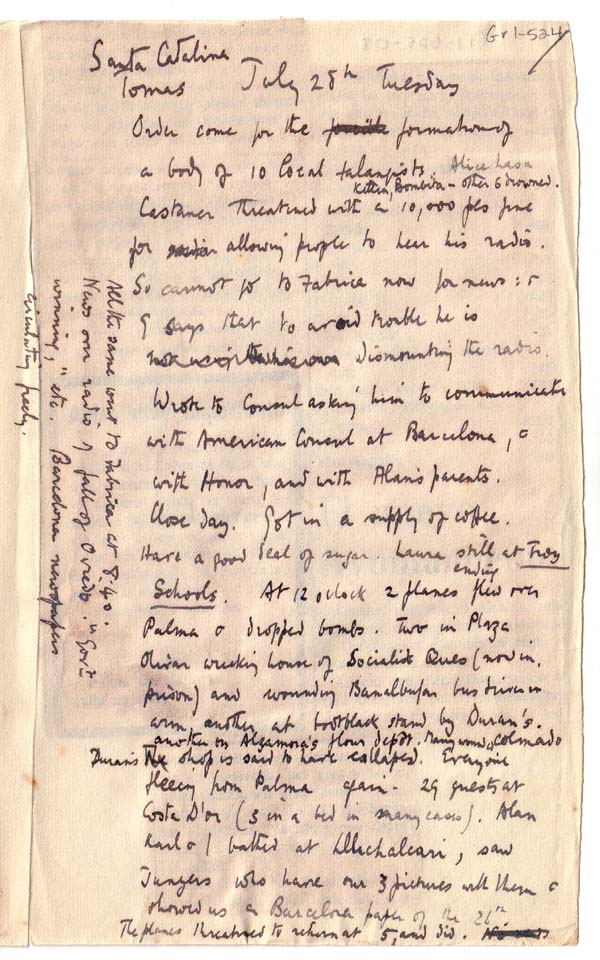 Gr1-524
Santa Catalina
Tomas July 28th Tuesday
Order come for the formation of
a body of 10 local falangists. Alice has a
kitten, Bombita – other 6 drowned.
Castaner threatened with a 10,000 pes fine
for allowing people to hear his radio.
So cannot go to Fabrica now for news:
G says that to avoid trouble he is
dismounting the radio.
Wrote to Consul asking him to communicate
with American Consul at Barcelona,
with Honor, and with Alan's parents.
Close day. Got in a supply of coffee.
Have a good deal of sugar. Laura still at Troy
ending
Schools. At 12 oclock 2 planes flew over
Palma & dropped bombs. Two in Plaza
Olivar wrecking house of Socialist Ques (now in
prison) and wounding Banalbufar bus driver in
arm another at bootblack stand by Duran's.
another on Alzamora's flour depôt. Many wounded Colmado
Duran's The shop is said to have collapsed. Everyone
fleeing from Palma again – 29 guests at
Costa D'or (3 in a bed in many cases). Alan
Karl & I bathed at Lluchalcari, saw
Jungers who have our 3 pictures with them &
showed us a Barcelona paper of the 26th
The planes threatened to return at 5, and did.
All the same went to Fabrica at 8.40.
News over radio of fall of Oviedo. "Govt
winning," etc. Barcelona newspapers
circulating freely.